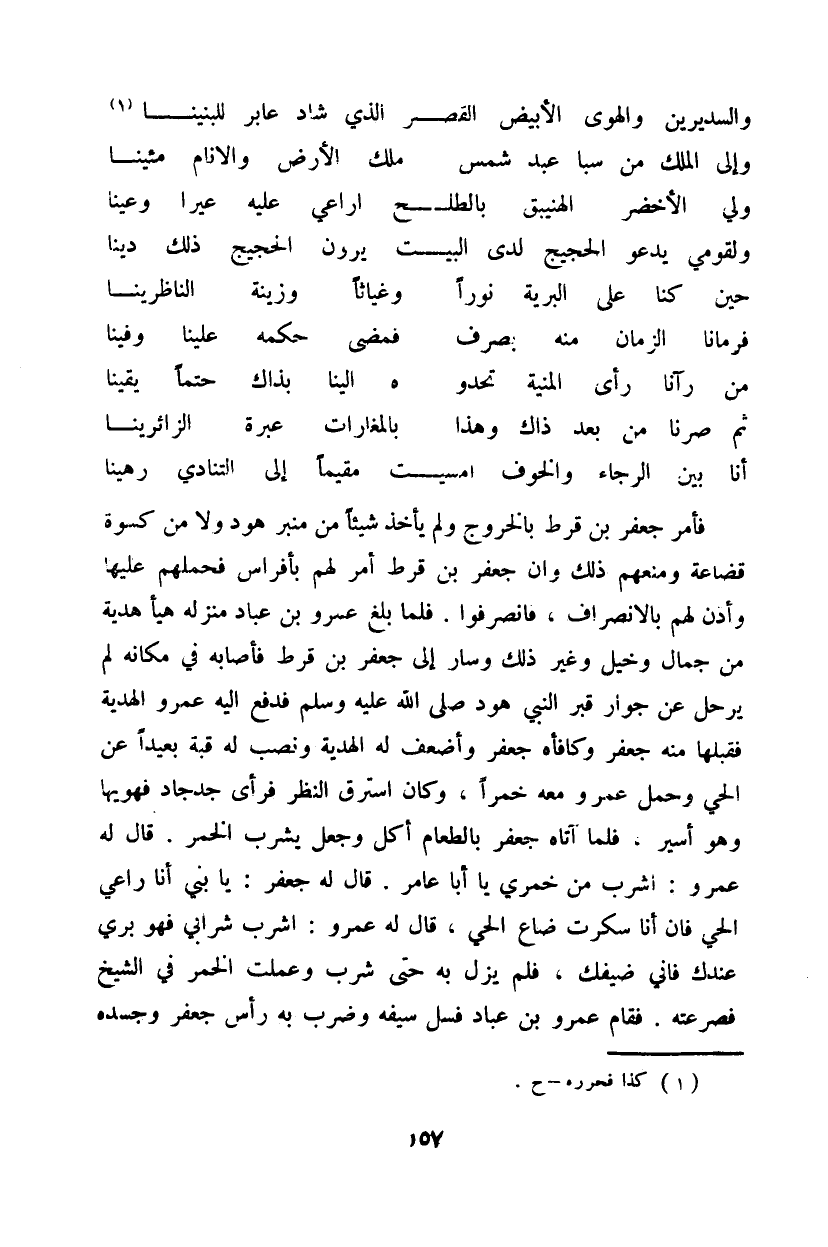 والسديرين والهوى الأبيض القصر الذي شاد عابر للبنينا (١)
وإلى الملك من سبا عبد شمس ملك الأرض والانام مثينا
ولي الأخضر الهنيبق بالطلح اراعي عليه عيرا وعينا
ولقومي يدعو الحجيج لدى البيت يرون الحجيج ذلك دينا
حين كنا على البرية نوراً وغياثاً وزينة الناظرينا
فرمانا الزمان منه بصرف فمضى حكمه علينا وفينا
من رآنا رأى المنية تحدو ه الينا بذاك حتماً يقينا
ثم صرنا من بعد ذاك وهذا بالمغارات عبرة الزائرينا
أنا بين الرجاء والخوف امسيت مقيماً إلى التنادي رهينا
فأمر جعفر بن قرط بالخروج ولم يأخذ شيئاً من منبر هود ولا من كسوة
قضاعة ومنعهم ذلك وان جعفر بن قرط أمر لهم بأفراس فحملهم عليها
وأذن لهم بالانصراف ، فانصرفوا . فلما بلغ عمرو بن عباد منزله هيأ هدية
من جمال وخيل وغير ذلك وسار إلى جعفر بن قرط فأصابه في مكانه لم
يرحل عن جوار قبر النبي هود صلى الله عليه وسلم فدفع اليه عمرو الهدية
فقبلها منه جعفر وكافأه جعفر وأضعف له الهدية ونصب له قبة بعيداً عن
الحي وحمل عمرو معه خمراً ، وكان استرق النظر فرأى جدجاد فهويها
وهو أسير ، فلما آتاه جعفر بالطعام أكل وجعل يشرب الخمر . قال له
عمرو : اشرب من خمري يا أبا عامر . قال له جعفر : يا بني أنا راعي
الحي فان أنا سكرت ضاع الحي ، قال له عمرو : اشرب شرابي فهو بري
عندك فاني ضيفك ، فلم يزل به حتى شرب وعملت الخمر في الشيخ
فصرعته . فقام عمرو بن عباد فسل سيفه وضرب به رأس جعفر وجسده
(١) كذا فحرره – ح .
١٥٧